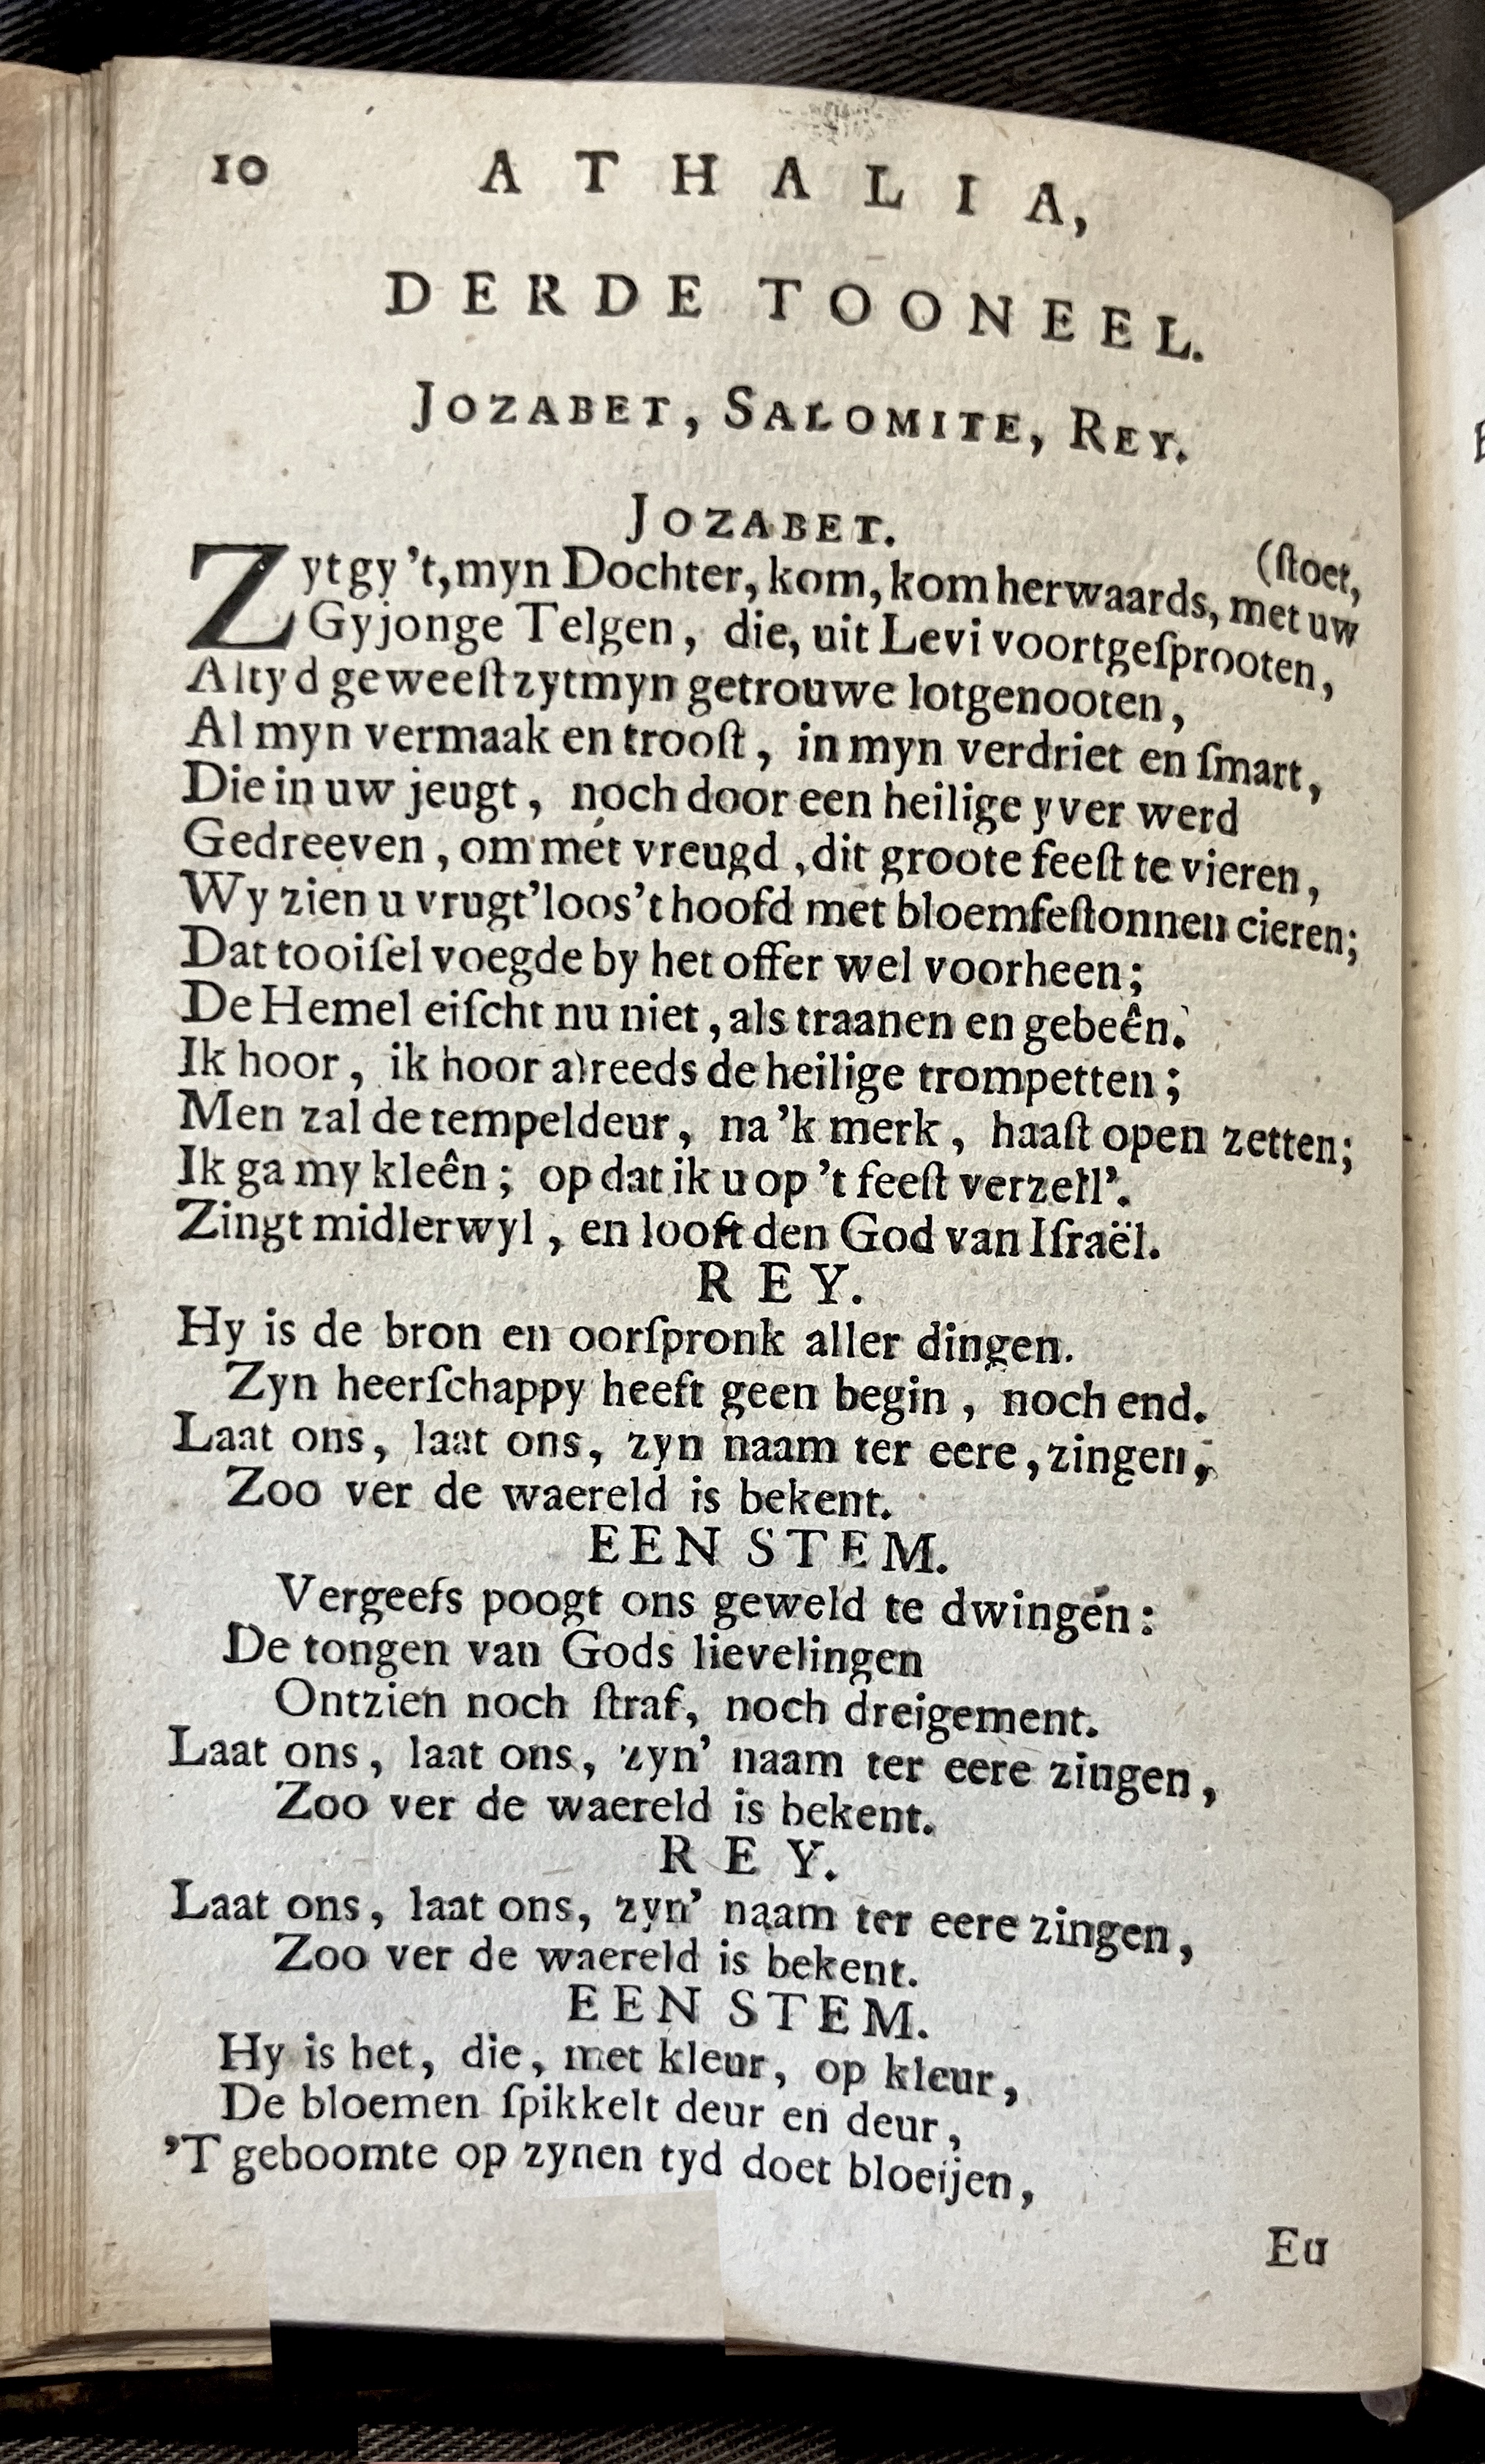 10 ATHALIA,
DERDE TOONEEL.
JOZABET, SALOMITE, REY.
JOZABET.
(ſtoet,
Zytgy 't, myn Dochter, kom, kom herwaards, met uw
Gy jonge Telgen, die, uit Levi voortgeſprooten,
Altyd geweeſt zyt myn getrouwe lotgenooten,
Al myn vermaak en trooſt, in myn verdriet en ſmart,
Die in uw jeugt, noch door een heilige yver werd
Gedreeven, om mét vreugd, dit groote feeſt te vieren,
Wy zien u vrugt'loos 't hoofd met bloemfeſtonnen cieren;
Dat tooiſel voegde by het offer wel voorheen;
De Hemel eiſcht nu niet, als traanen en gebeên.
Ik hoor, ik hoor alreeds de heilige trompetten;
Men zal de tempeldeur, na 'k merk, haaſt open zetten;
Ik ga my kleên; op dat ik u op 't feeſt verzell'.
Zingt midlerwyl, en looft den God van Iſraël.
REY.
Hy is de bron en oorſpronk aller dingen.
Zyn heerſchappy heeft geen begin, noch end.
Laat ons, laat ons, zyn naam ter eere, zingen,
Zoo ver de waereld is bekent.
EEN STEM.
Vergeefs poogt ons geweld te dwingen:
De tongen van Gods lievelingen
Ontzien noch ſtraf, noch dreigement.
Laat ons, laat ons, zyn' naam ter eere zingen,
Zoo ver de waereld is bekent.
REY.
Laat ons, laat ons, zyn' naam ter eere zingen,
Zoo ver de waereld is bekent.
EEN STEM.
Hy is het, die, met kleur, op kleur,
De bloemen ſpikkelt deur en deur,
'T geboomte op zynen tyd doet bloeijen,
En